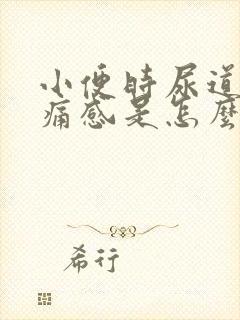 小便時尿道
痛感是怎麼
希行